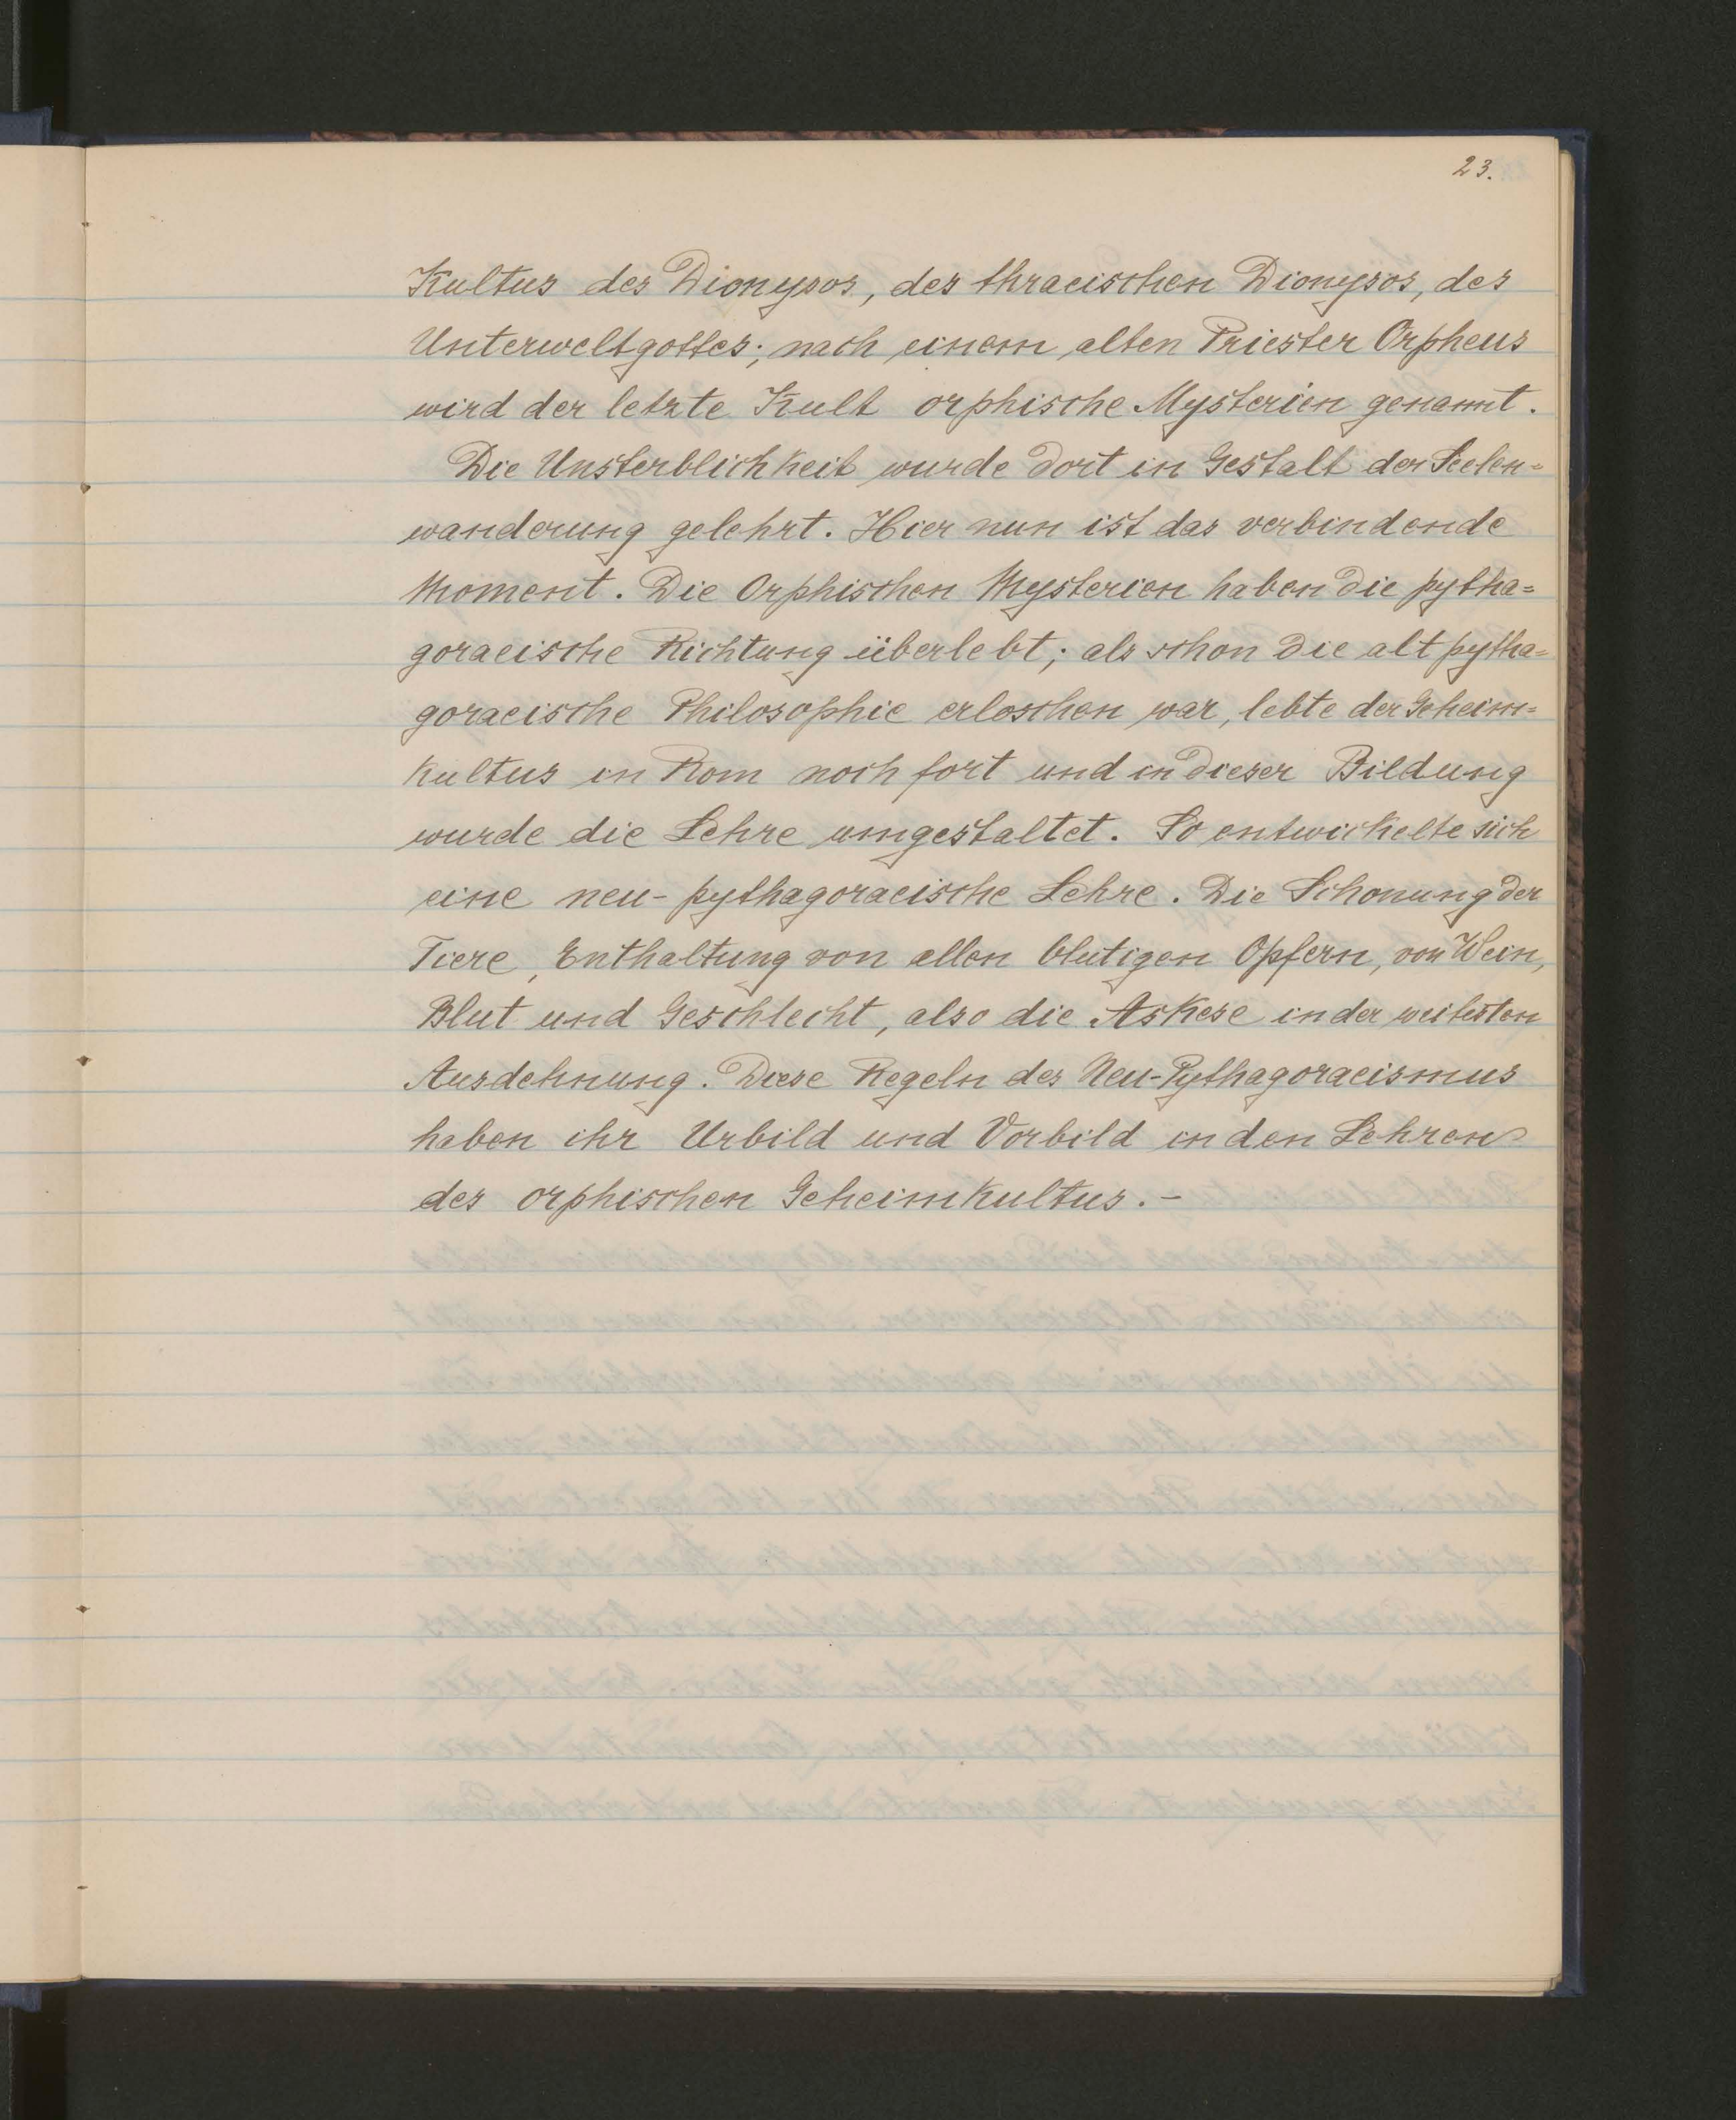 23.
Kultus des Dionysos, des thracischen Dionysos, des
Unterweltgottes; nach einem alten Priester Orpheus
wird der letzte Kult orphische Mysterien genannt.
Die Unsterblichkeit wurde dort in Gestalt der Seelen=
wanderung gelehrt. Hier nun ist das verbindende
Moment. Die Orphischen Mysterien haben die pytha=
goraeische Richtung überlebt; als schon die alt pytha=
goraeische Philosophie erloschen war, lebte der Geheim=
kultus in Rom noch fort und in dieser Bildung
wurde die Lehre umgestaltet. So entwickelte sich
eine neu-pythagoraeische Lehre. Die Schonung der
Tiere, Enthaltung von allen blutigen Opfern, von Wein,
Blut und Geschlecht, also die Askese in der weitesten
Ausdehnung. Diese Regeln des Neu-Pythagoraeismus
haben ihr Urbild und Vorbild in den Lehren
des orphischen Geheimkultus.-